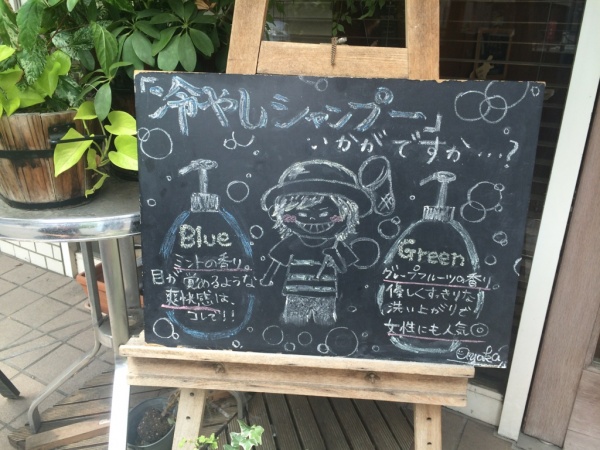 「冷やしシャンプー」
いかがですか…?
Blue
ミントの香り。
目が覚めるような
爽快感は、
コレで!!
Green
グレープフルーツの香り。
優しくすっきりな
洗い上がりで
女性にも人気◎
Ayaka